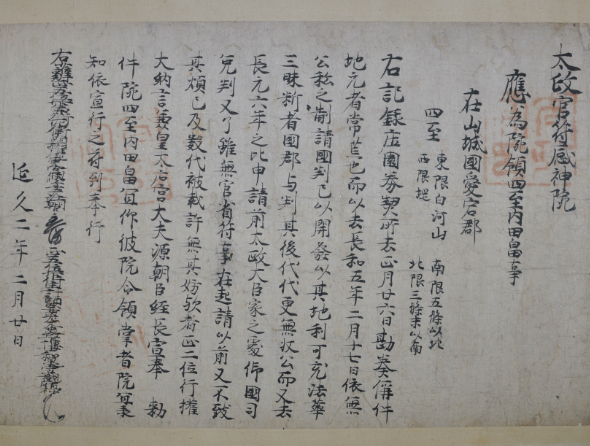 太政官符感神院
應為院領四至内田畠事
在山城國愛宕郡
四至 東限白河山 南限五條以北
西限堤 北限三條末以南
右記録庄園券契所去正月廿六日勘奏偁件
地元者常荒也而以去長和五年二月十七日依無
公私之制請國判已以開發以其地利可充法華
三昧斷者國郡与判其後代代更無收公而又去
長元六年之比申請前太政大臣家之處仰國司
免判又了雖無官省符事在起請以前又不致
其煩已及數代被裁許無其妨欤者正二位行權
大納言兼皇太后宮大夫源朝臣經長宣奉 勅
件院四至内田畠宜仰彼院令領掌者院宜承
知依宣行之符到奉行
延久二年二月廿日